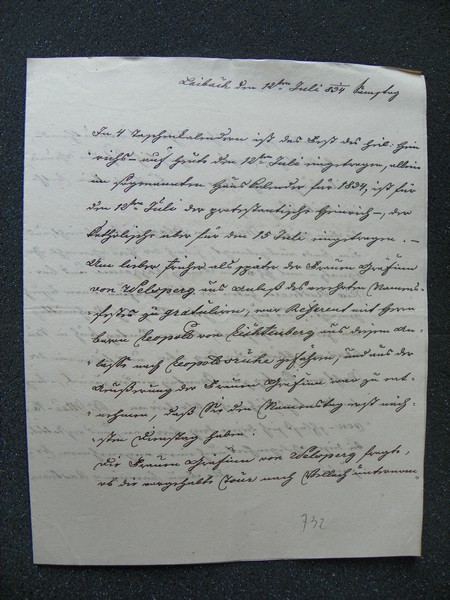 Laibach den 12ten Juli 834 Samstag
In 4 Taschenkalendern ist das Fest des heil. Hein-
richs auf heute den 12ten Juli eingetragen, allein
im sogenannten Hauskalender für 1834, ist für
den 12ten Juli der protestantische Heinrich, der
katholische aber für den 15 Juli eingetragen. –
Um lieber früher als später der Frauen Gräfinn
von Welsperg aus Anlaß des verehrten Namens-
festes zu gratuliren, war Referent mit Herrn
Baron Leopold von Lichtenberg aus diesem An-
lasse nach Leopoldsruhe gefahren, und aus der
Äußerung der Frauen Gräfinn war zu ent-
nehmen, daß Sie den Namenstag erst näch-
sten Dienstag haben.
Die Frauen Gräfinn von Welsperg sagte,
ob die vorgehabte Tour nach Villach unternom-
732